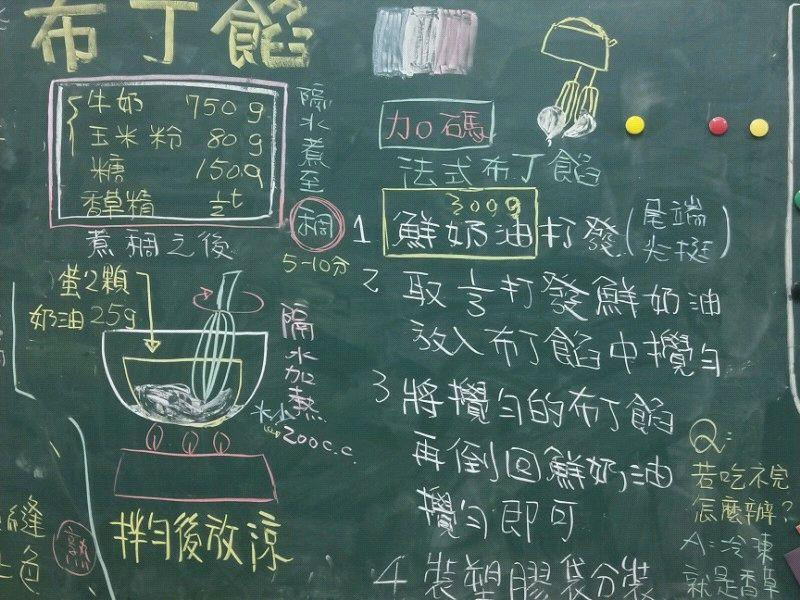 布丁餡
牛奶 750g
玉米粉 80g
糖 150g
香草精 ½t
隔水煮至
稠
5-10分
煮稠之後
蛋2顆
奶油25g
隔水加熱
水小
200c.c.
拌勻後放涼
加碼
法式布丁餡
300g
1 鮮奶油打發(尾端
尖挺)
2 取⅓打發鮮奶油
放入布丁餡中攪勻
3 將攪勻的布丁餡
再倒回鮮奶油
攪勻即可
4 裝塑膠袋分裝
Q:
若吃不完
怎麼辦?
A:冷凍
就是香草
縫
色